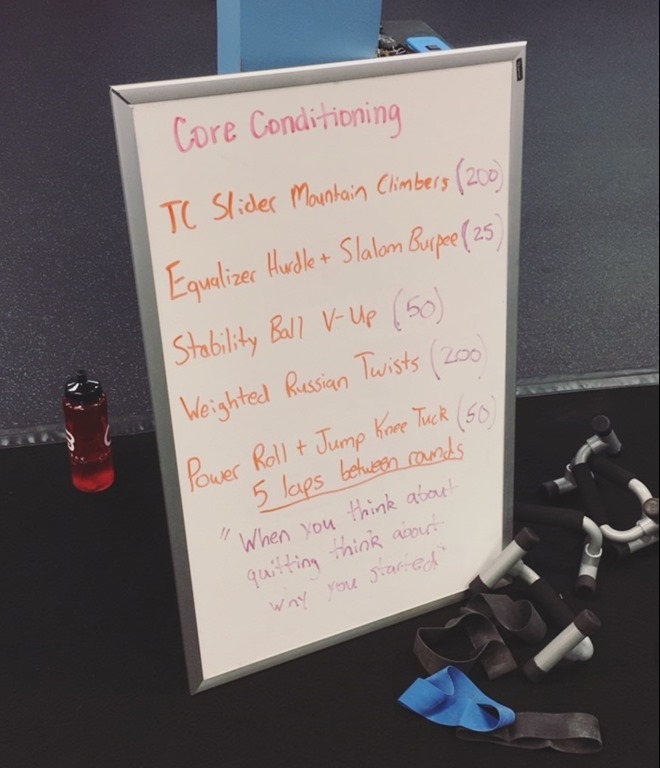 Core Conditioning
TC Slider Mountain Climbers (200)
Equalizer Hurdle + Slalom Burpee (25)
Stability Ball V-Up (50)
Weighted Russian Twists (200)
Power Roll + Jump Knee Tuck (50)
5 laps between rounds
"When you think about
quitting think about
why you started"